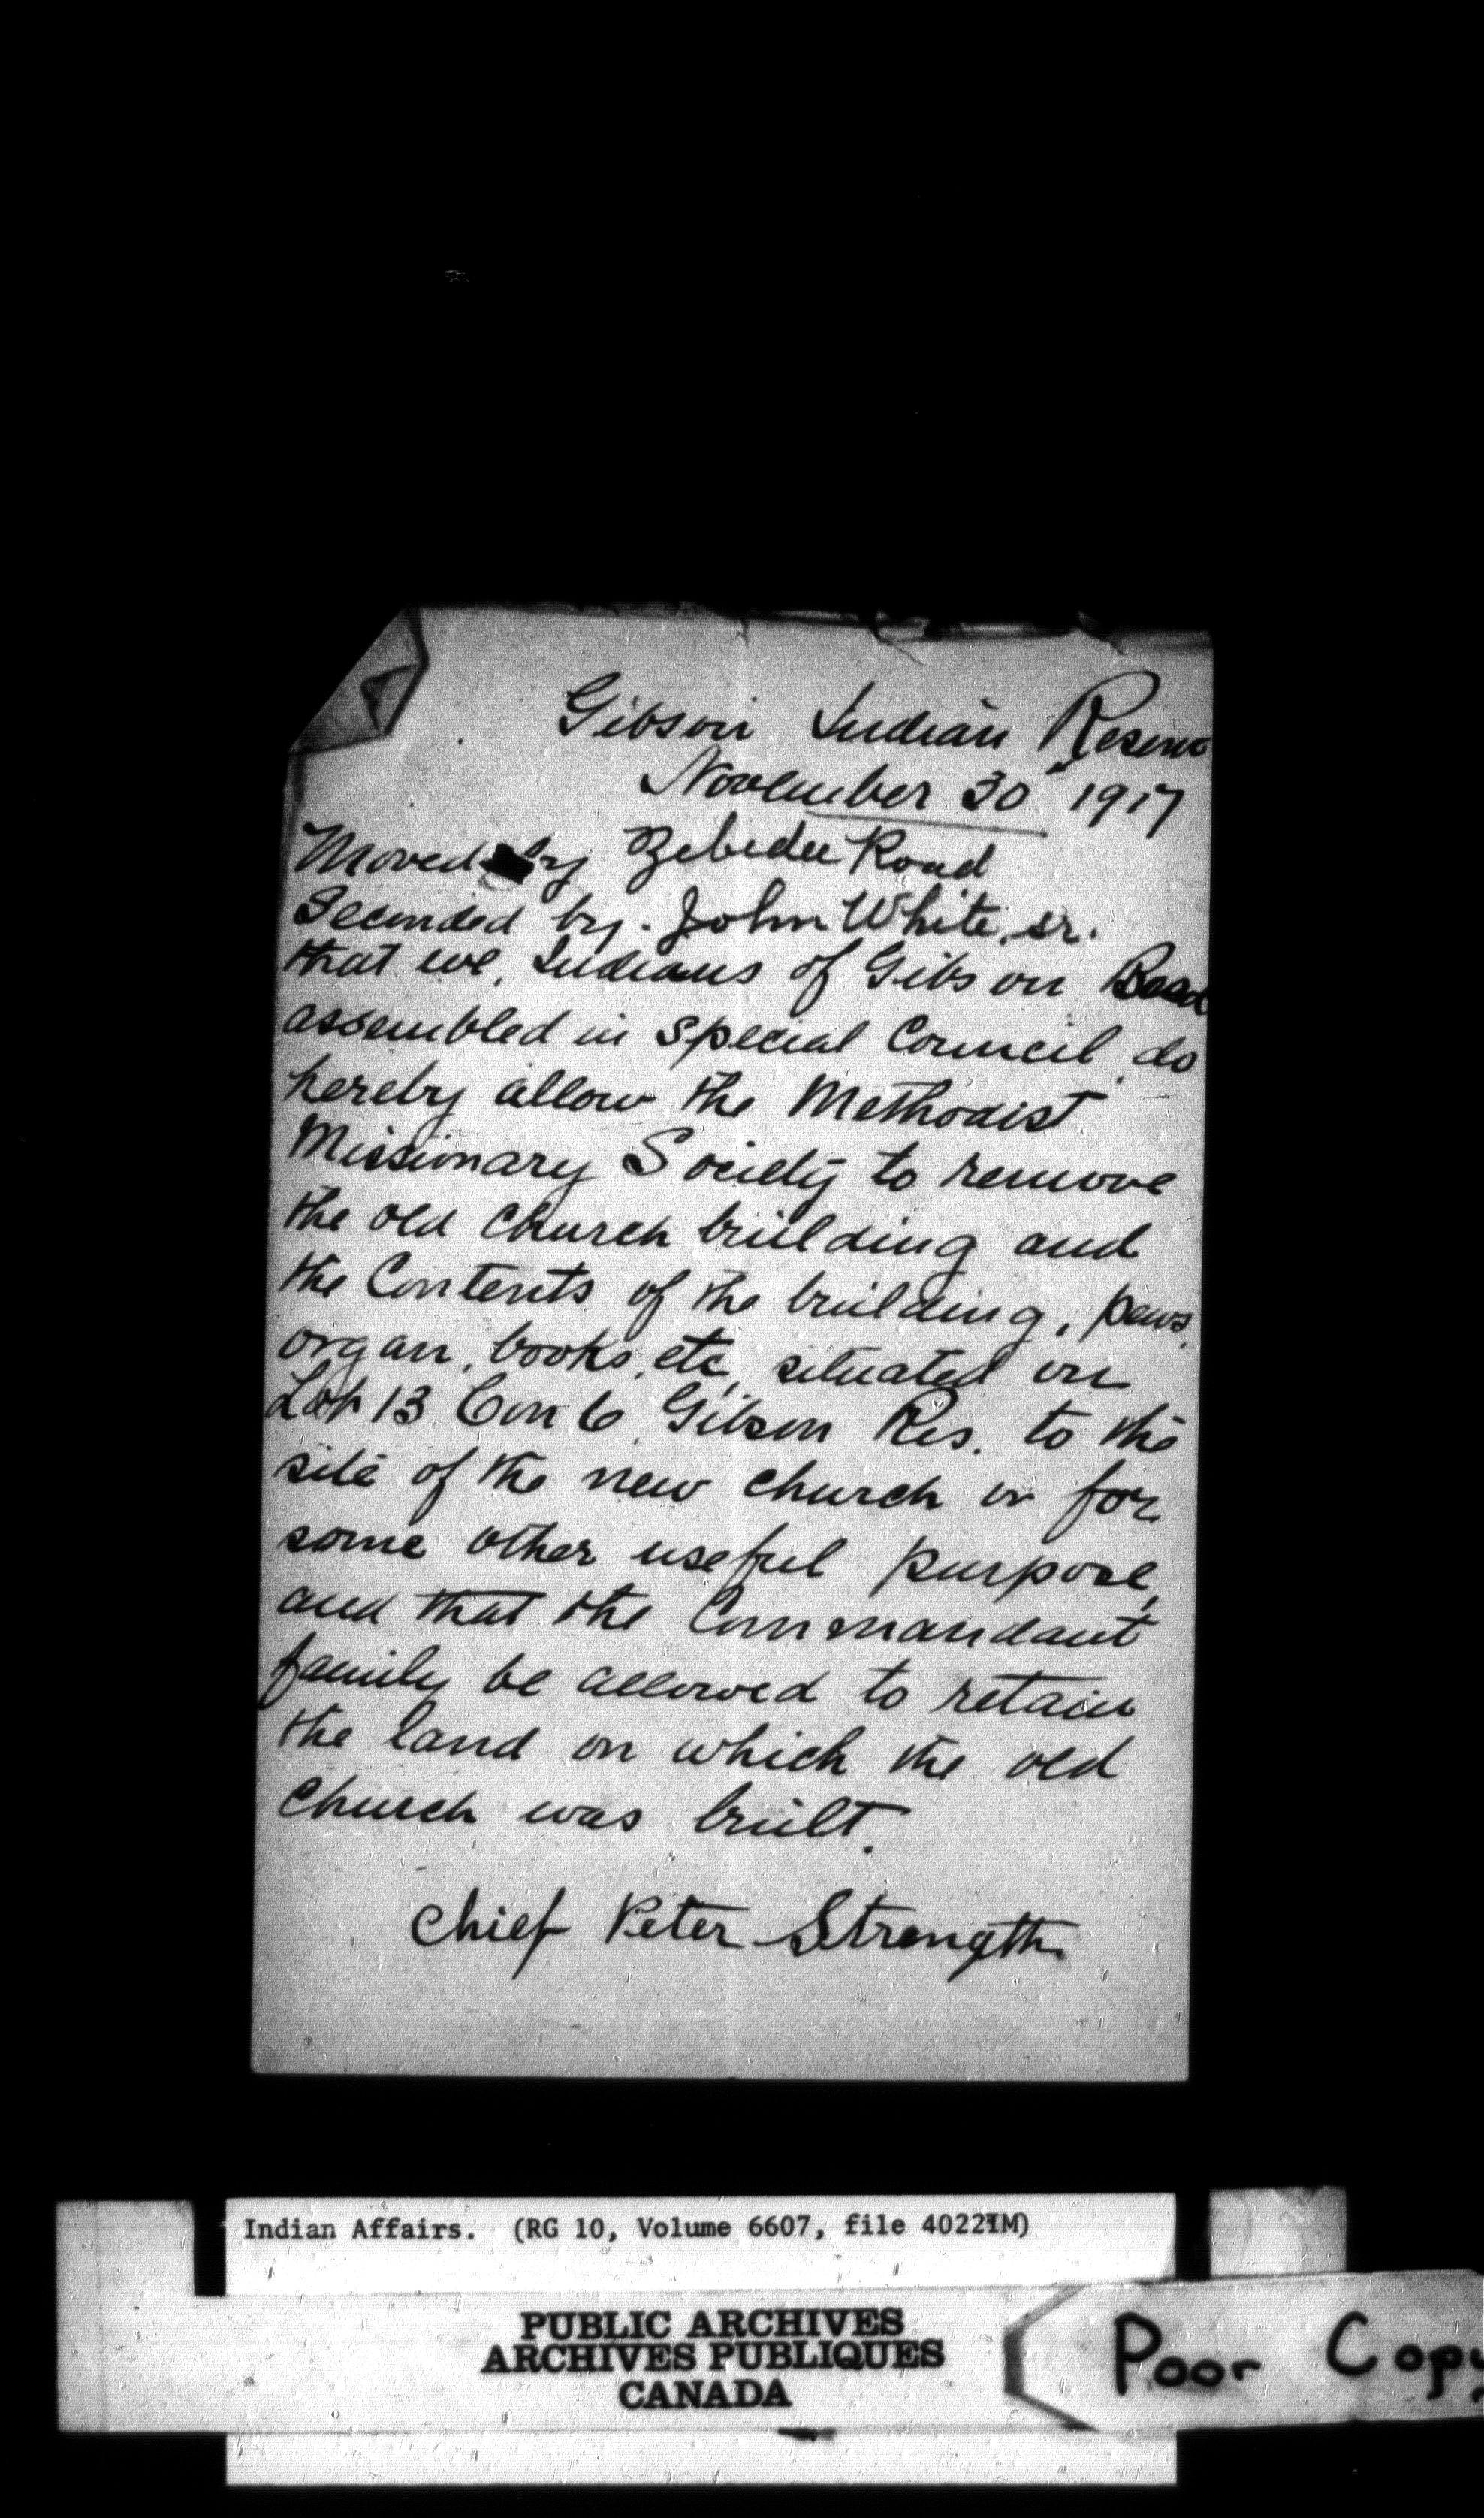 Gibson Indian Reserve
November 30" 1917
Moved by Zebedee Road
Seconded by. John White, sr.
that we, Indians of Gibson
assembled in special Council, do
hereby allow the Methodist
Missionary Society to remove
the old church building and
the Contents of the building, pews,
organ, books, etc, situated on
Lot 13 Con 6, Gibson Res. to the
site of the new church or for
some other useful purpose,
and that the Commandant
family be allowed to retain
the land on which the old
church was built.
Chief Peter Strength
Indian Affairs. (RG 10, Volume 6607, file
PUBLIC ARCHIVES
ARCHIVES PUBLIQUES
CANADA
Poor Copy